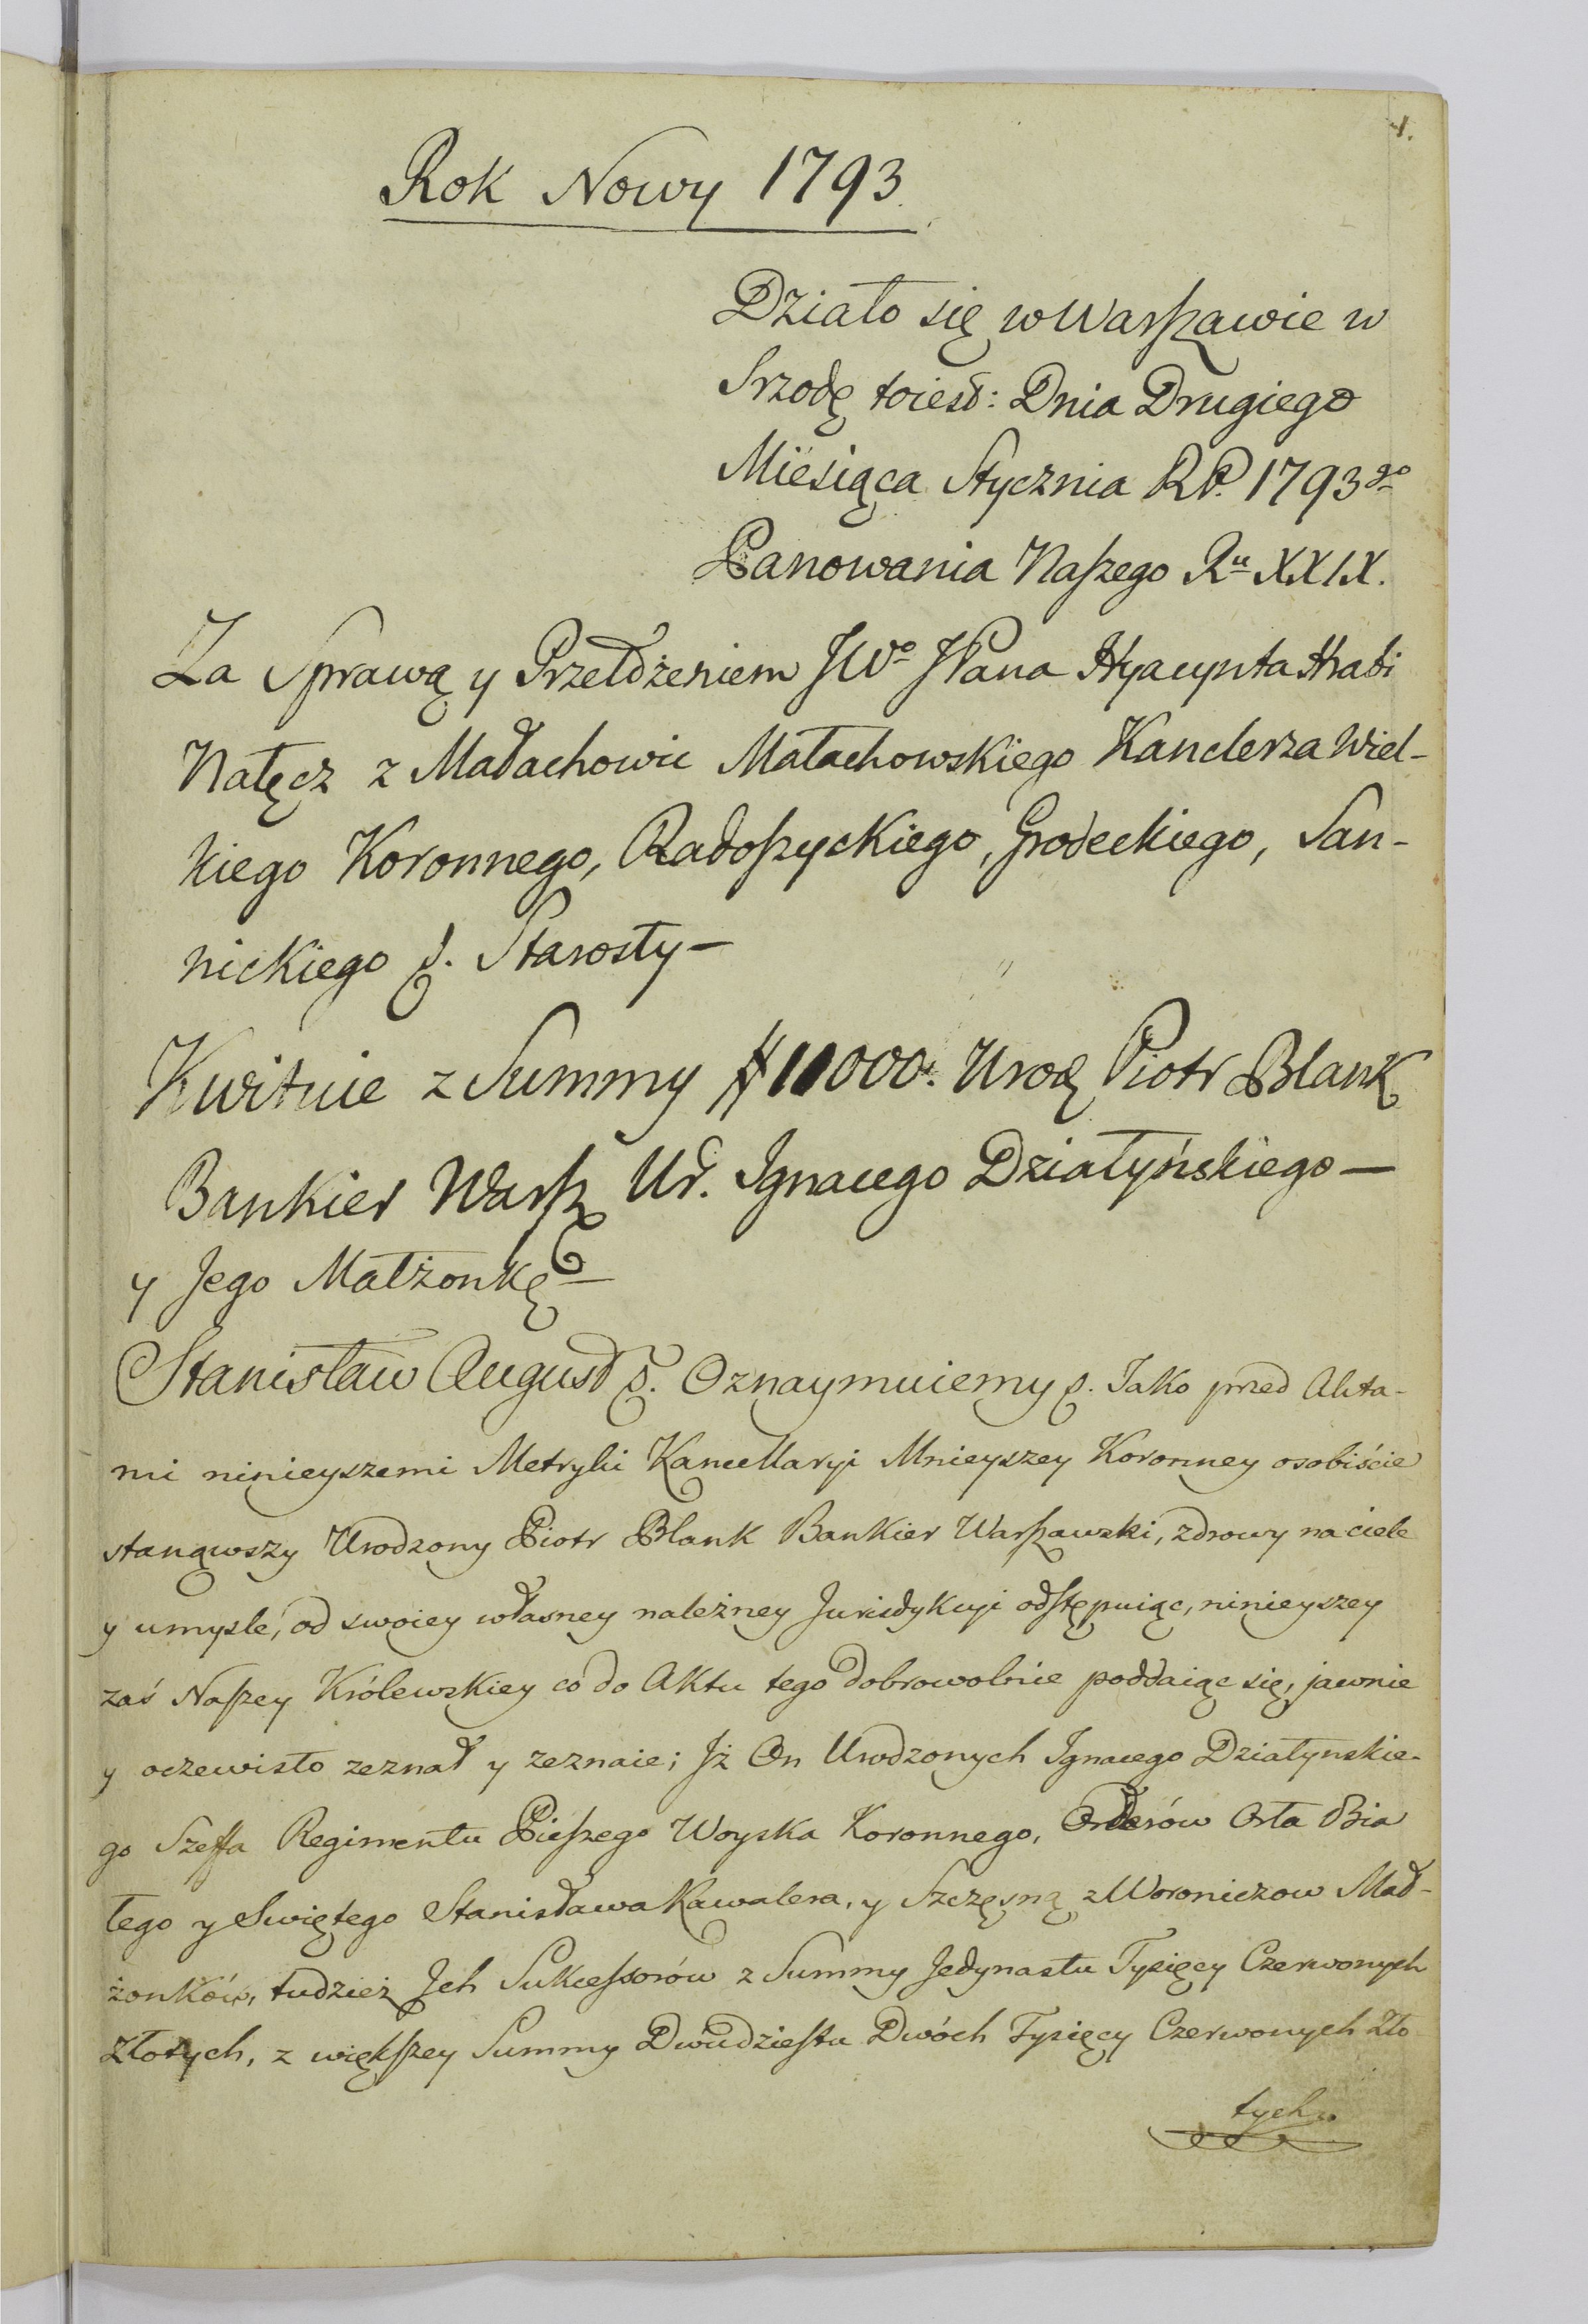 1.
Rok Nowy 1793.
Działo się w Warszawie w
Srzodę toiest: Dnia Drugiego
Miesiąca Stycznia RP. 1793go
Panowania Naszego Ru XXIX.
Za Sprawą y Przełożeniem JWo JPana Hyacynta Hrabi
Nałęcz z Małachowic Małachowskiego Kanclerza Wiel-
kiego Koronnego, Radoszyckiego, Grodeckiego, San-
nickiego &. Starosty –
Kwituie z Summy # 11000. Urodz Piotr Blank
Bankier Warsz Ur. Ignacego Działyńskiego –
y Jego Małżonkę –
Stanisław August &. Oznaymuiemy &. Jako przed Akta-
mi ninieyszemi Metryki Kancellaryi Mnieyszey Koronney osobiście
stanąwszy Urodzony Piotr Blank Bankier Warszawski, zdrowy na ciele
y umysle, od swoiey własney należney Jurisdykcyi odstępuiąc, ninieyszey
zaś Naszey Królewskiey co do Aktu tego dobrowolnie poddaiąc się, jawnie
y oczewisto zeznał y zeznaie; Jż On Urodzonych Ignacego Działynskie-
go Szeffa Regimentu Pieszego Woyska Koronnego, Orderów Orła Bia
łego y Swiętego Stanisława Kawalera, y Szczęsną z Woroniczow Mał-
żonków, tudzież Jch Sukcessorów z Summy Jedynastu Tysięcy Czerwonych
Złotych, z większey Summy Dwudziestu Dwóch Tysięcy Czerwonych Zło
tych